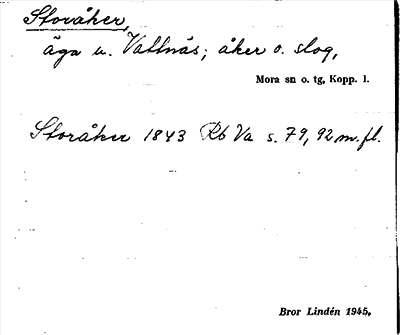 Storåker,
äga u. Vattnäs; åker o. slog,
Mora sn o. tg, Kopp. l.
Storåker 1843 Rb Va s. 79, 92 m. fl.
Bror Lindén 1945.